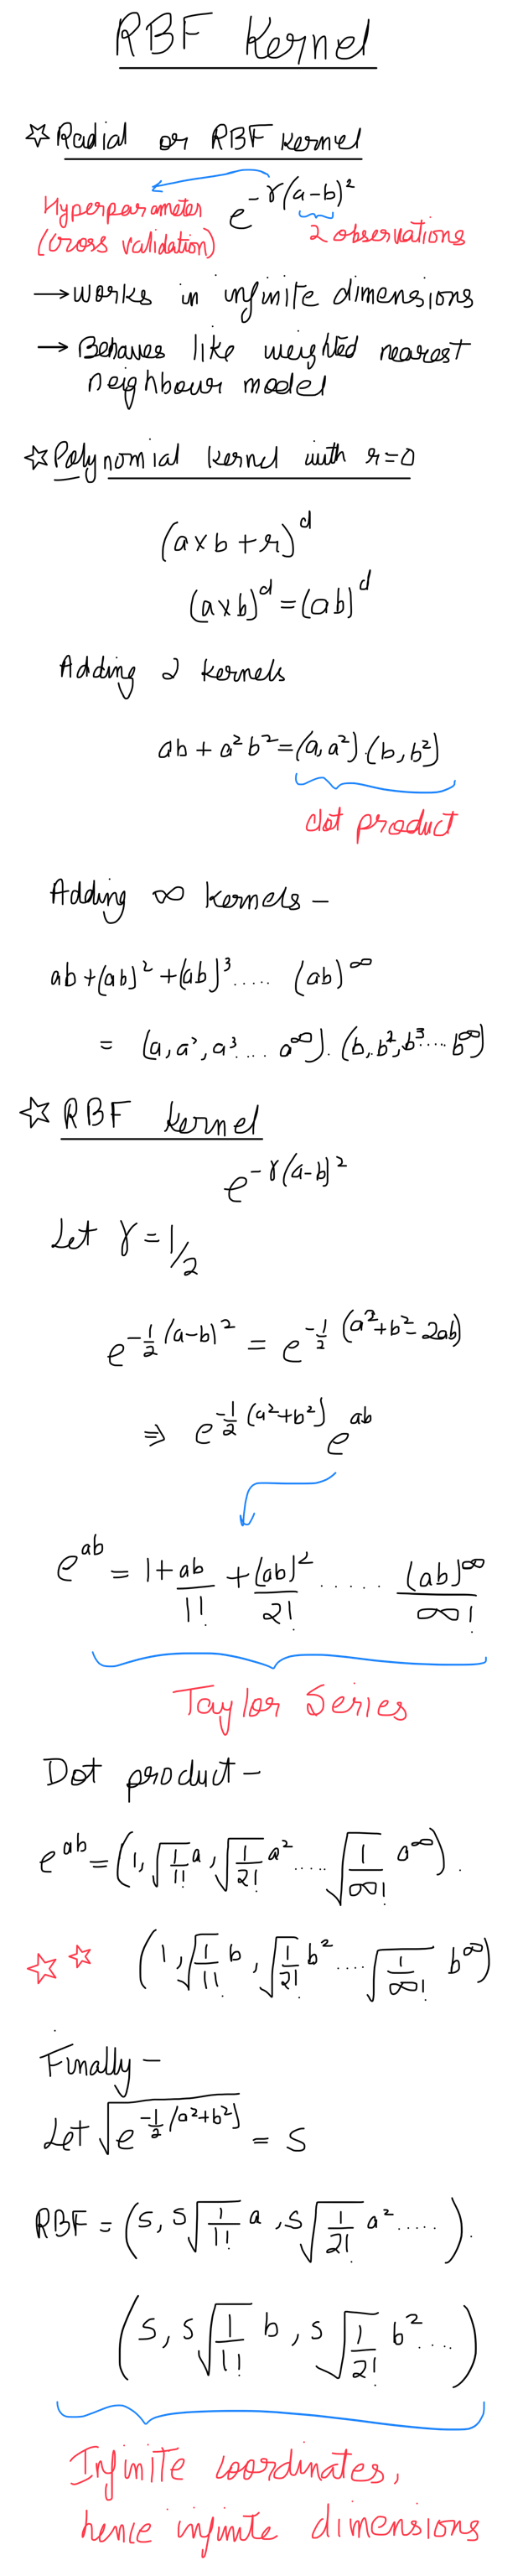 RBF Kernel
☆ Radial or RBF Kernel
Hyperparameter
(Cross validation)
e^{-γ(a-b)²}
2 observations
→ Works in infinite dimensions
→ Behaves like weighted nearest
neighbour model
☆ Polynomial Kernel with r=0
(a×b+r)^d
(a×b)^d = (ab)^d
Adding 2 kernels
ab + a²b² = (a, a²).(b, b²)
dot product
Adding ∞ kernels –
ab + (ab)² + (ab)³ ..... (ab)^∞
= (a, a², a³ .... a^∞). (b, b², b³ .... b^∞)
☆ RBF Kernel
e^{-γ(a-b)²}
Let γ = 1/2
e^{-1/2 (a-b)²} = e^{-1/2 (a²+b²-2ab)}
⇒ e^{-1/2 (a²+b²)} e^{ab}
e^{ab} = 1 + ab/1! + (ab)²/2! ..... (ab)^∞/∞!
Taylor Series
Dot product –
e^{ab} = (1, √(1/1!) a, √(1/2!) a² ..... √(1/∞!) a^∞) .
☆☆ (1, √(1/1!) b, √(1/2!) b² .... √(1/∞!) b^∞)
Finally –
Let √(e^{-1/2 (a²+b²)}) = S
RBF = (S, S√(1/1!) a, S√(1/2!) a² .....) .
(S, S√(1/1!) b, S√(1/2!) b² ....)
Infinite coordinates,
hence infinite dimensions